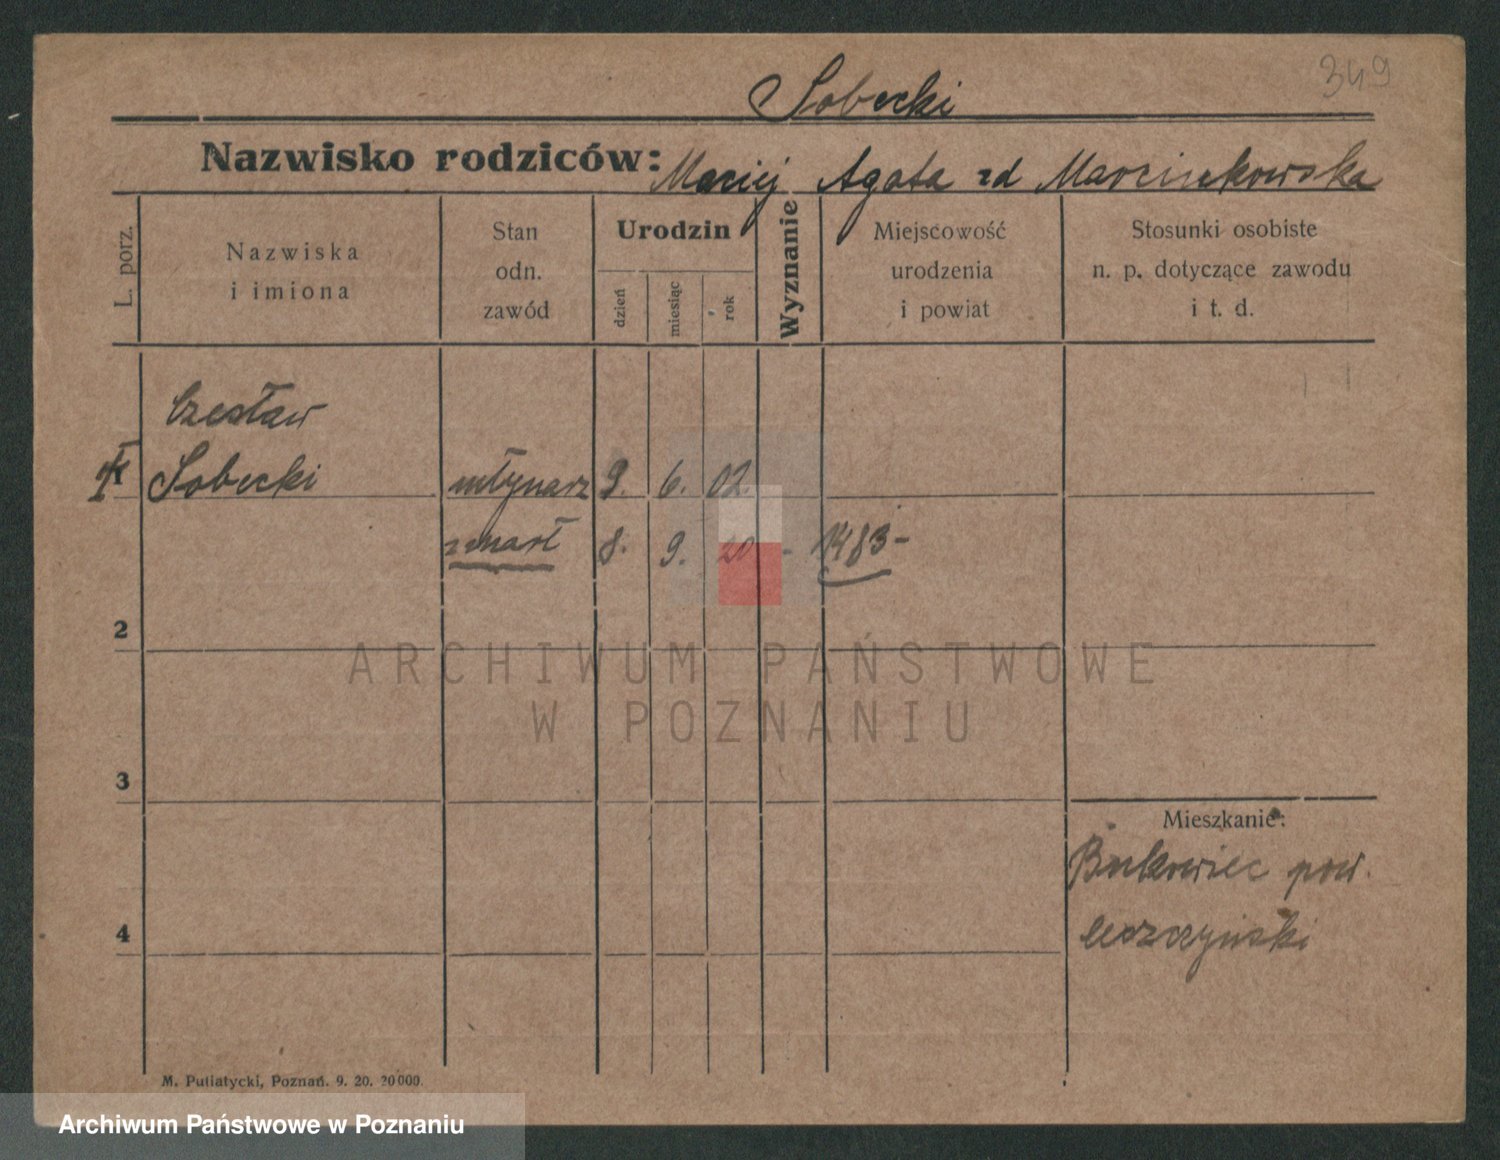 349
Sobecki
Nazwisko rodziców: Maciej Agata zd Marcinkowska
L. porz.
Nazwiska
i imiona
Stan
odn.
zawód
Urodzin
dzień
miesiąc
rok
Wyznanie
Miejscowość
urodzenia
i powiat
Stosunki osobiste
n. p. dotyczące zawodu
i t. d.
Czesław
1 Sobecki młynarz 9. 6. 02.
zmarł 8. 9. 20 - 1483-
2
ARCHIWUM PAŃSTWOWE
W POZNANIU
3
Mieszkanie:
Bukowiec pow.
4 leszczyński
M. Putiatycki, Poznań. 9. 20. 20000.
Archiwum Państwowe w Poznaniu